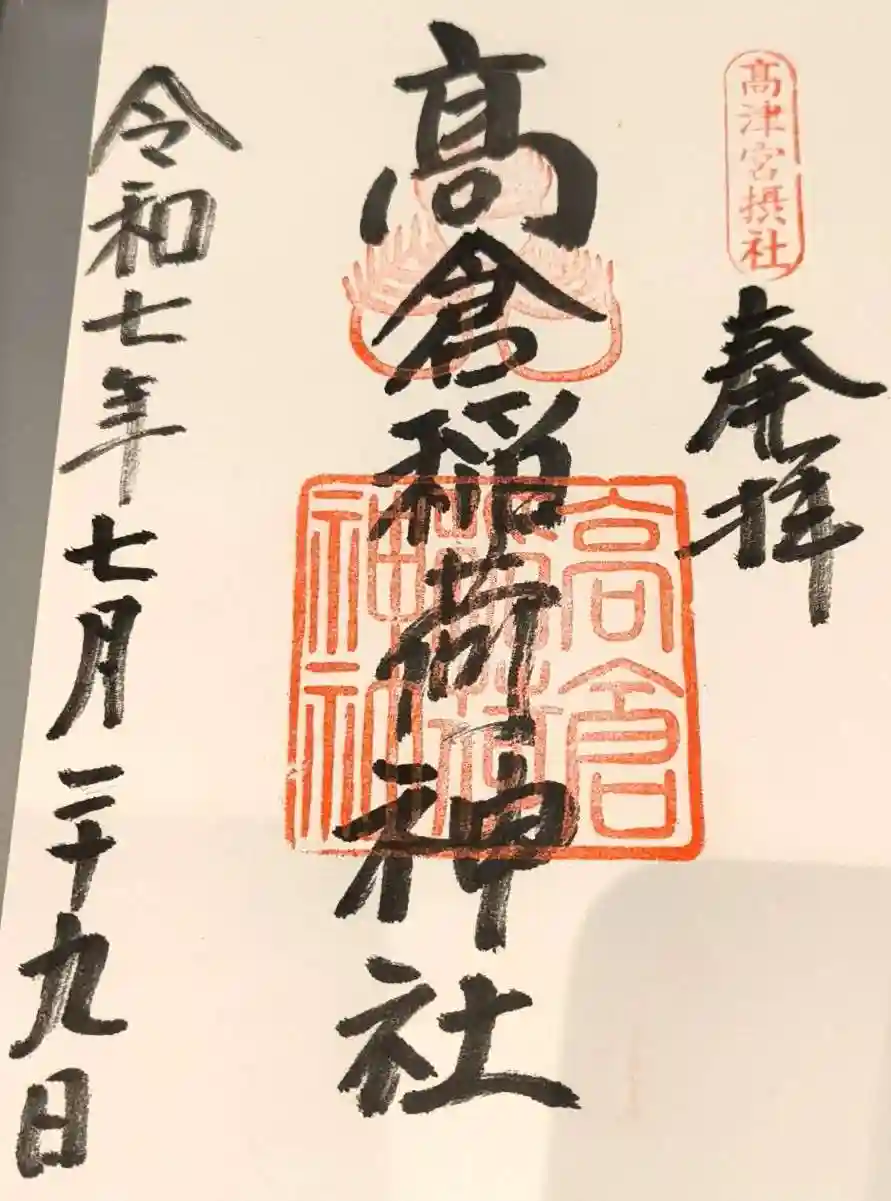 髙津宮摂社
奉拝
髙倉稲荷神社
高倉
稲荷
神社
令和七年七月二十九日